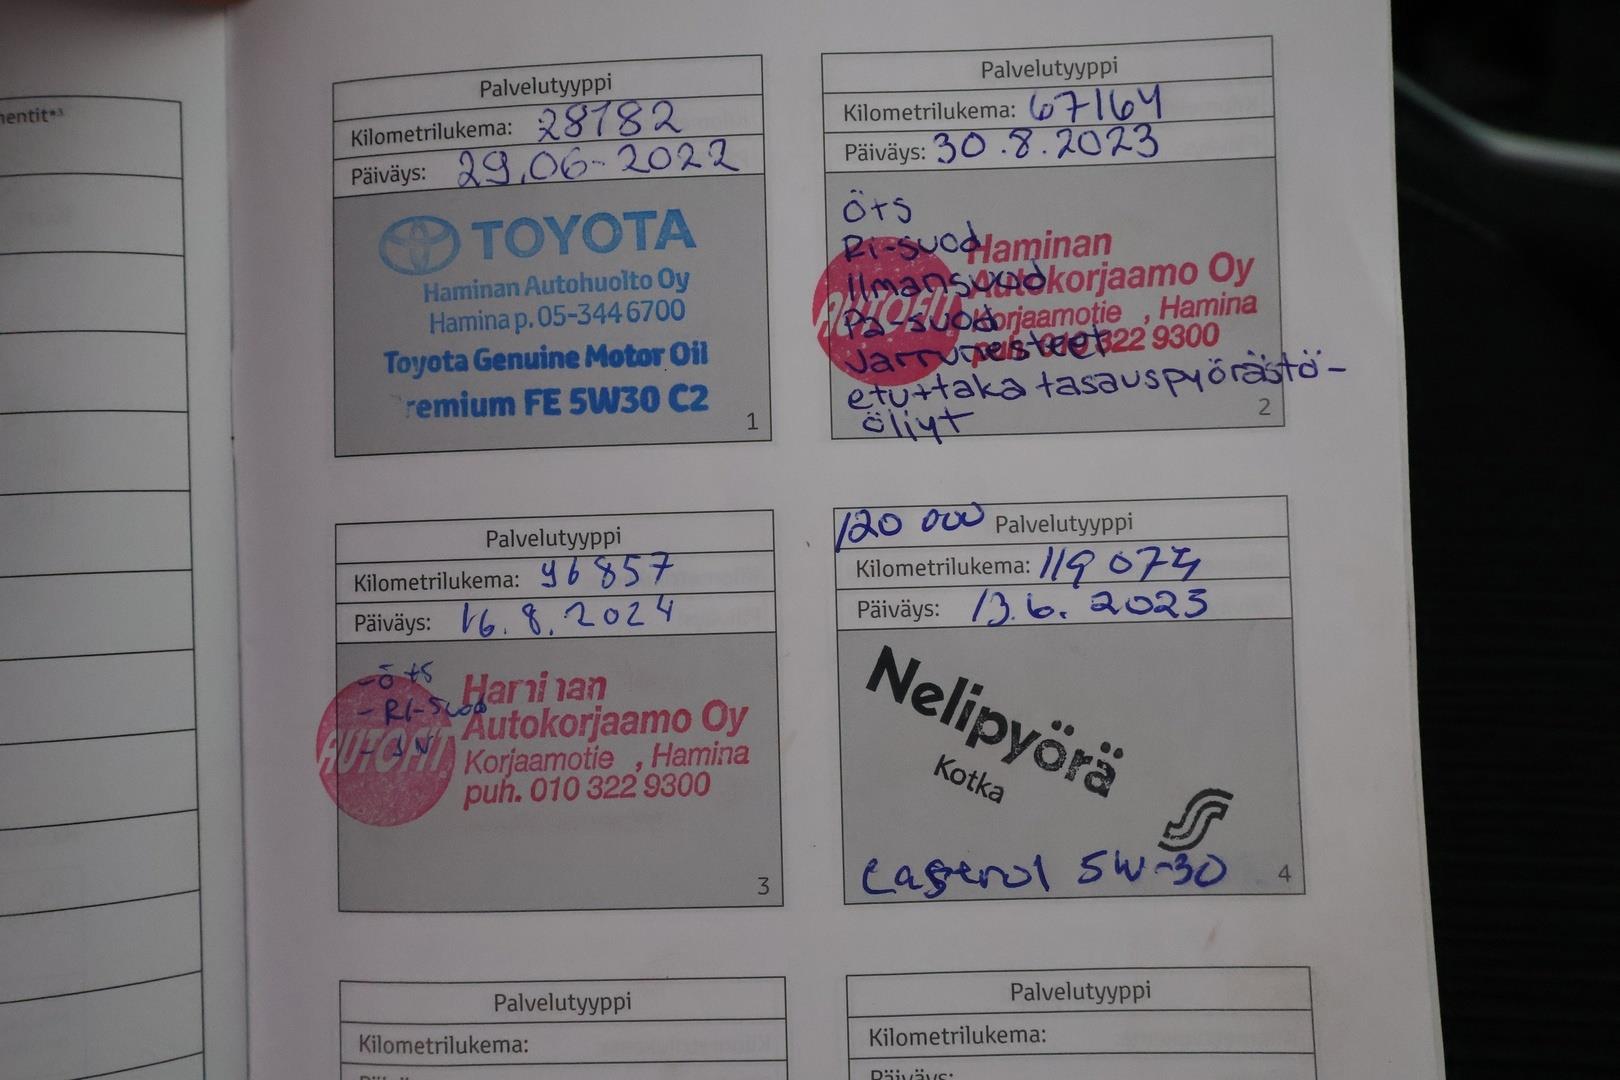 mentit*3
Palvelutyyppi
Kilometrilukema: 28182
Päiväys: 29.06-2022
TOYOTA
Haminan Autohuolto Oy
Hamina p. 05-344 6700
Toyota Genuine Motor Oil
remium FE 5W30 C2
1
Palvelutyyppi
Kilometrilukema: 67164
Päiväys: 30.8.2023
Öts
Ri-suod
Ilmansuod
Pa-suod
Jarrunesteet
etu+taka tasauspyörästö-
öljyt
AUTOFIT
Haminan
Autokorjaamo Oy
Korjaamotie , Hamina
puh. 010 322 9300
2
Palvelutyyppi
Kilometrilukema: 96857
Päiväys: 16.8.2024
-Ö ts
- Ri-Suod
- JN
AUTOFIT
Haminan
Autokorjaamo Oy
Korjaamotie , Hamina
puh. 010 322 9300
3
120 000 Palvelutyyppi
Kilometrilukema: 119 074
Päiväys: 13.6.2025
Nelipyörä
Kotka
5W-30
4
Palvelutyyppi
Kilometrilukema:
Palvelutyyppi
Kilometrilukema:
Päiväys: